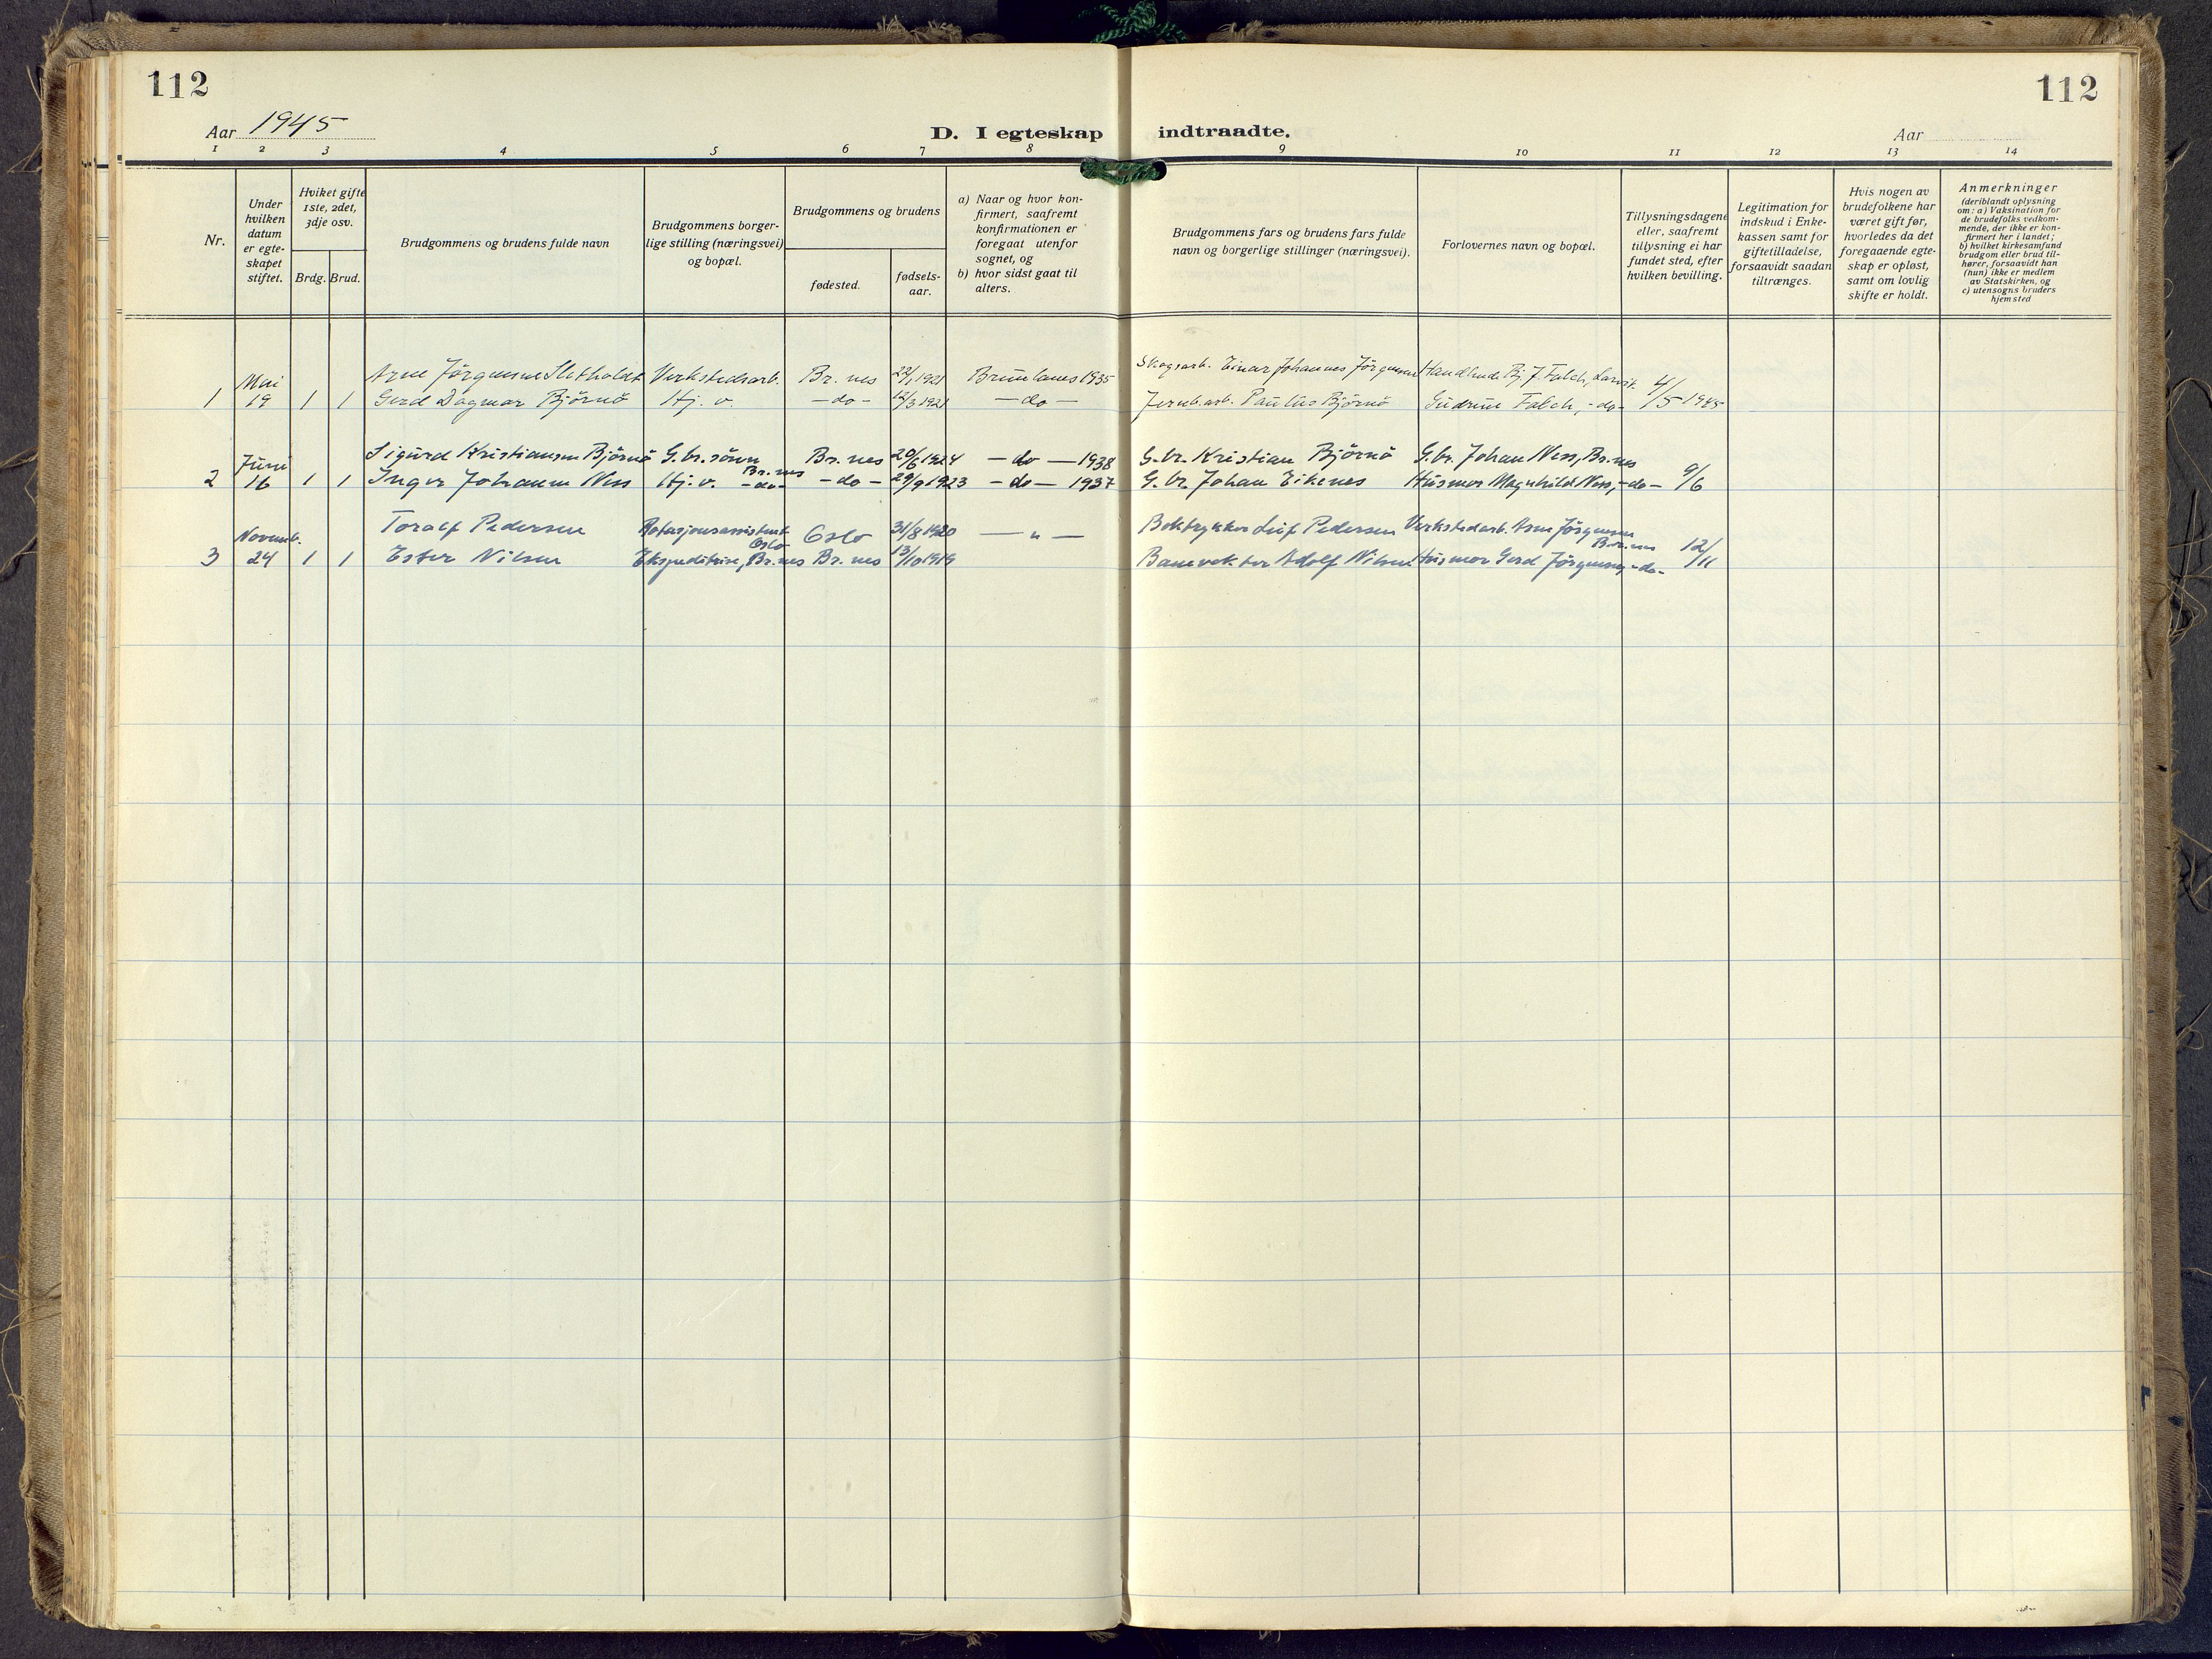 112
112
Aar 1945
D. I egteskap indtraadte.
Aar
1 2 3 4 5 6 7 8 9 10 11 12 13 14
Nr.
Under hvilken datum er egte-skapet stiftet.
Hviket gifte 1ste, 2det, 3dje osv.
Brdg. Brud.
Brudgommens og brudens fulde navn
Brudgommens borger-lige stilling (næringsvei) og bopæl.
Brudgommens og brudens
fødested.
fødsels-aar.
a) Naar og hvor kon-firmert, saafremt konfirmationen er foregaat utenfor sognet, og
b) hvor sidst gaat til alters.
Brudgommens fars og brudens fars fulde navn og borgerlige stillinger (næringsvei).
Forlovernes navn og bopæl.
Tillysningsdagene eller, saafremt tillysning ei har fundet sted, efter hvilken bevilling.
Legitimation for indskud i Enke-kassen samt for giftetilladelse, forsaavidt saadan tiltrænges.
Hvis nogen av brudefolkene har været gift før, hvorledes da det foregaaende egte-skap er opløst, samt om lovlig skifte er holdt.
Anmerkninger (deriblandt oplysning om: a) Vaksination for de brudefolks vedkom-mende, der ikke er kon-firmert her i landet; b) hvilket kirkesamfund brudgom eller brud til-hører, forsaavidt han (hun) ikke er medlem av Statskirken, og c) utensogns bruders hjemsted
Mai Arne Jørgensen Verkstedsarb. Br. nes 22/1 1921 Brunlanes 1935 Skogsarb. Einar Johannes Jørgensen Bj. J. Falch, Larvik 4/5 1945
1 19 1 1 Gerd Dagmar Bjørnø Hj. v. -do- 12/3 1921 -do- Jernb.arb. Paulus Bjørnø Gudrun Falch, -do-
Juni Sigurd Kristiansen Bjørnø G.br. sønn Br. nes Br. nes 20/6 1924 -do- 1938 G.br. Kristian Bjørnø G.br. Johan Ness, Br. nes 9/6
2 16 1 1 Inger Johanne Ness Hj. v. -do- -do- 29/9 1923 -do- 1937 G.br. Johan Eikenes Husmor Magnhild Ness, -do-
Novemb. Toralf Pedersen Rotasjonsassistent Oslo Oslo 31/8 1920 — " — Boktrykker Leif Pedersen Verkstedarb. Arne Jørgensen Br. nes 12/11
3 24 1 1 Ester Nilsen Ekspeditrise, Br. nes Br. nes 13/10 1919 Banevokter Adolf Nilsen Husmor Gerd Jørgensen, -do-